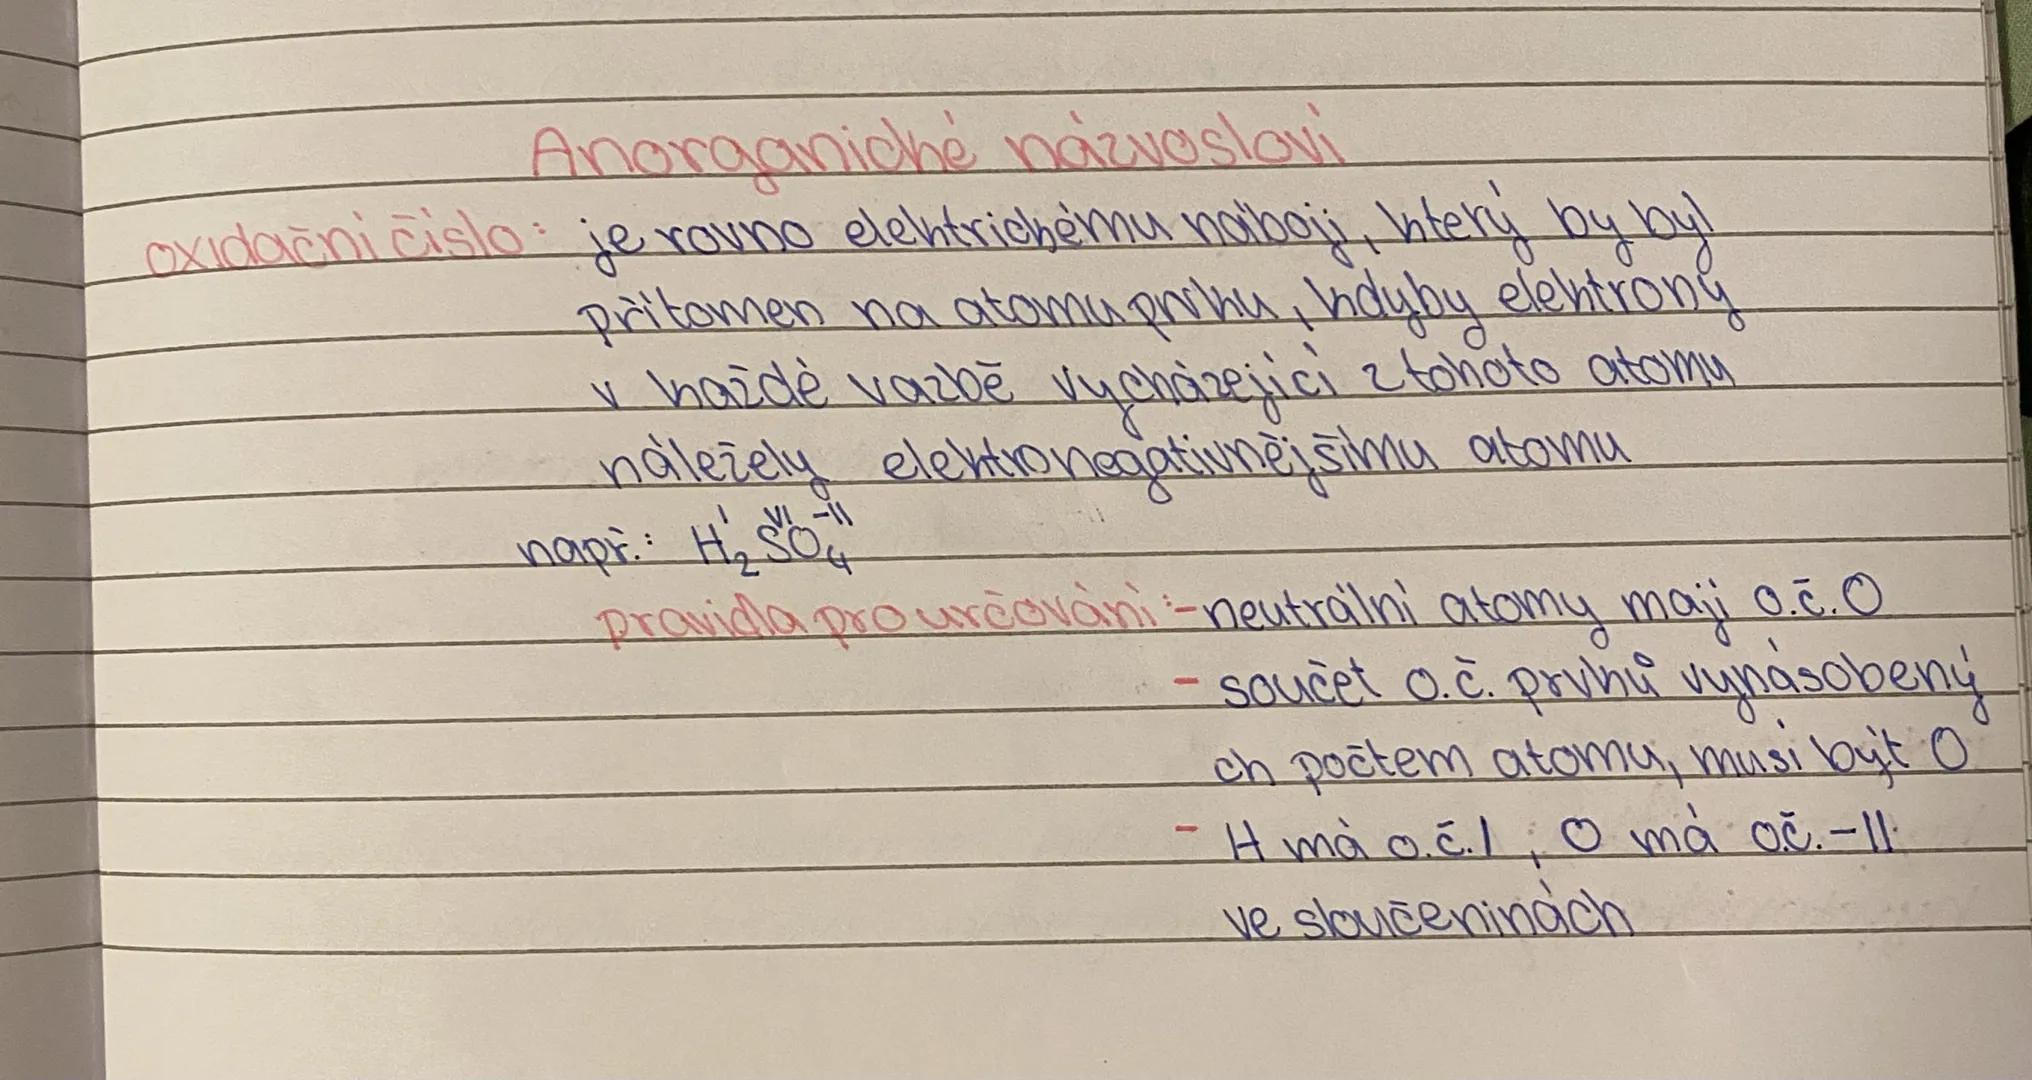 Anorganické názvosloví
oxidační číslo: je rovno elektrickému náboji, který by byl
přítomen na atomu prvku, kdyby elektrony
v každé vazbě vycházející z tohoto atomu
náležely elektronegativnějšímu atomu
např.: H₂ᴵSⱽᴵO₄⁻ᴵᴵ
pravidla pro určování: - neutrální atomy mají o.č. 0
- součet o.č. prvků vynásobený
ch počtem atomu, musí být 0
- H má o.č. I, O má o.č. -II
ve sloučeninách